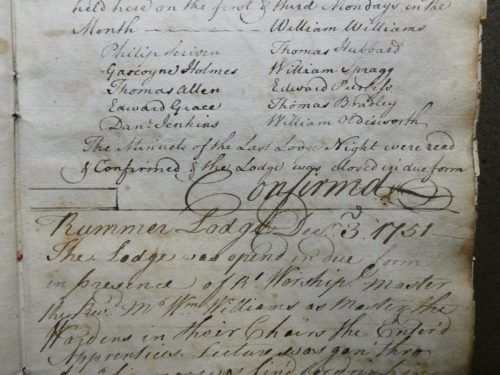 held here on the first & third Mondays in the
Month William Williams
Philip Scriven Thomas Hubbard
Gascoyne Holmes William Spragg
Thomas Allen Edward Purliss
Edward Grace Thomas Bradley
Danl. Jenkins William Oldisworth
The Minuets of the Last Lodge Night were read
& Confirmed & the Lodge was closed in due form
Confirmd
Rummer Lodge Decr. 3d. 1751
The Lodge was opend in due form
in presence of Rt. Worshipl. Master
the Revd. Mr. Wm. Williams as Master the
Wardens in their Chairs the Enter'd
Apprentices Lecture was gon thro